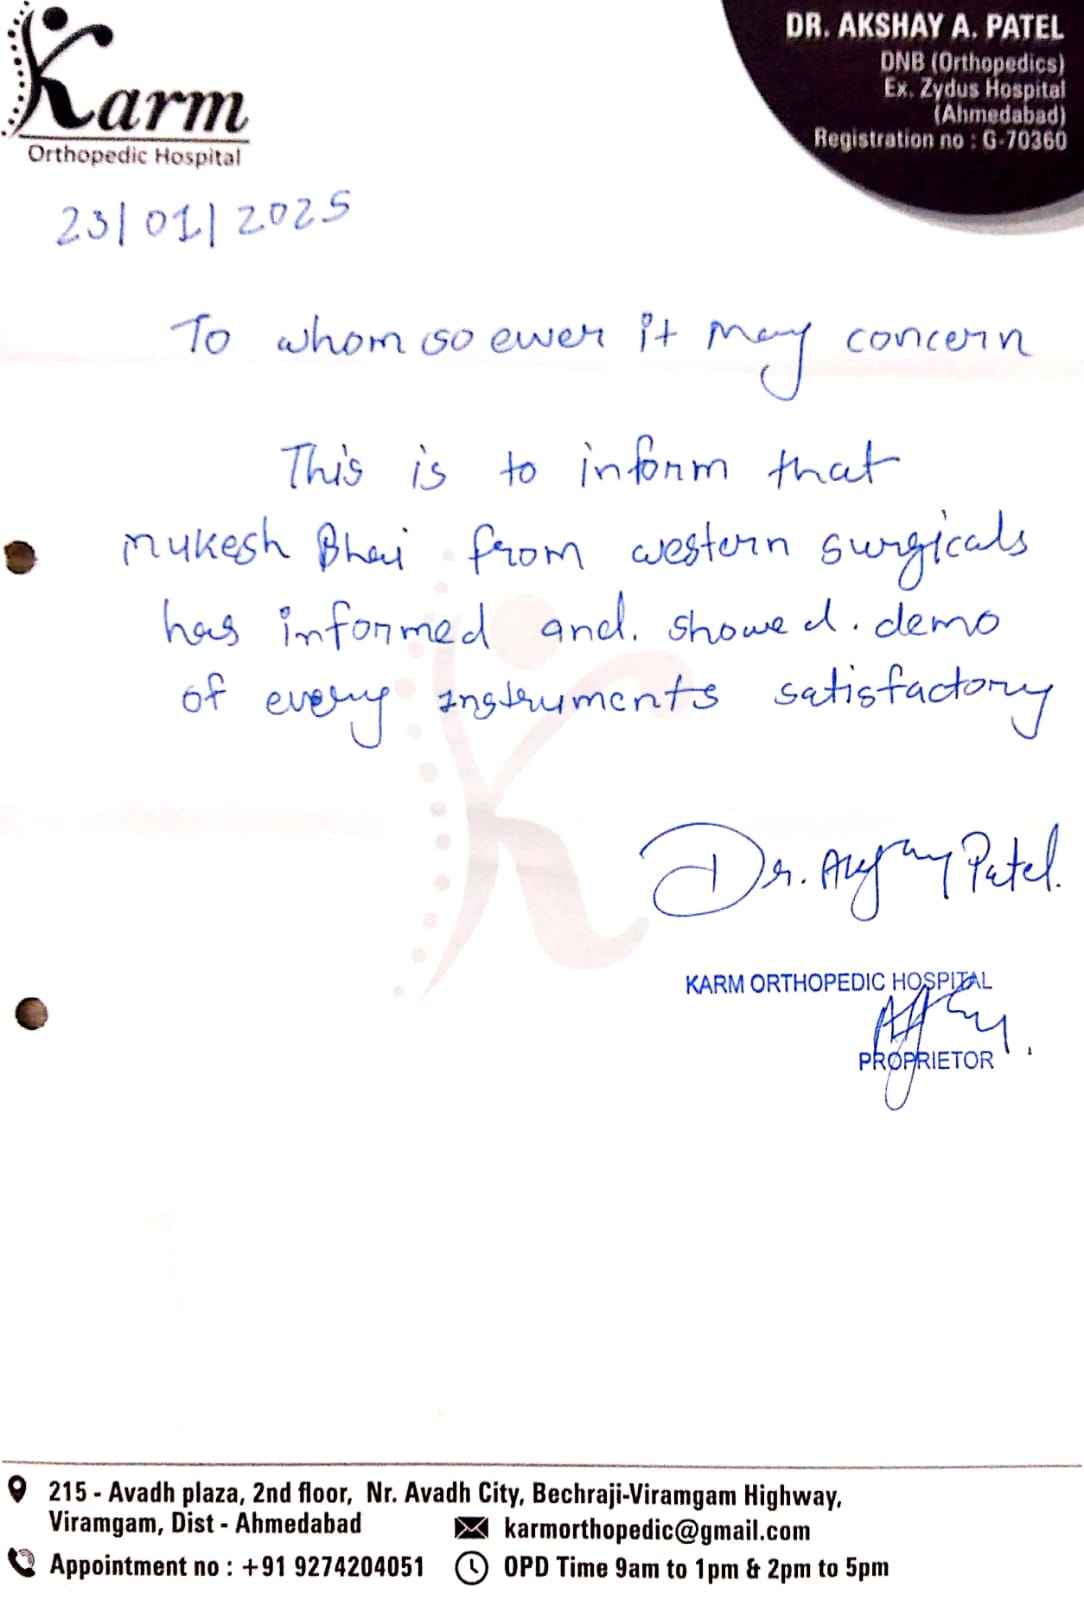 Karm
Orthopedic Hospital
DR. AKSHAY A. PATEL
DNB (Orthopedics)
Ex. Zydus Hospital
(Ahmedabad)
Registration no : G-70360
23/01/2025
To whom so ever it may concern
This is to inform that
Mukesh Bhai from western surgicals
has informed and. showed. demo
of every instruments satisfactory
Dr. Akshay Patel.
KARM ORTHOPEDIC HOSPITAL
PROPRIETOR
215 - Avadh plaza, 2nd floor, Nr. Avadh City, Bechraji-Viramgam Highway,
Viramgam, Dist - Ahmedabad
karmorthopedic@gmail.com
Appointment no : +91 9274204051
OPD Time 9am to 1pm & 2pm to 5pm